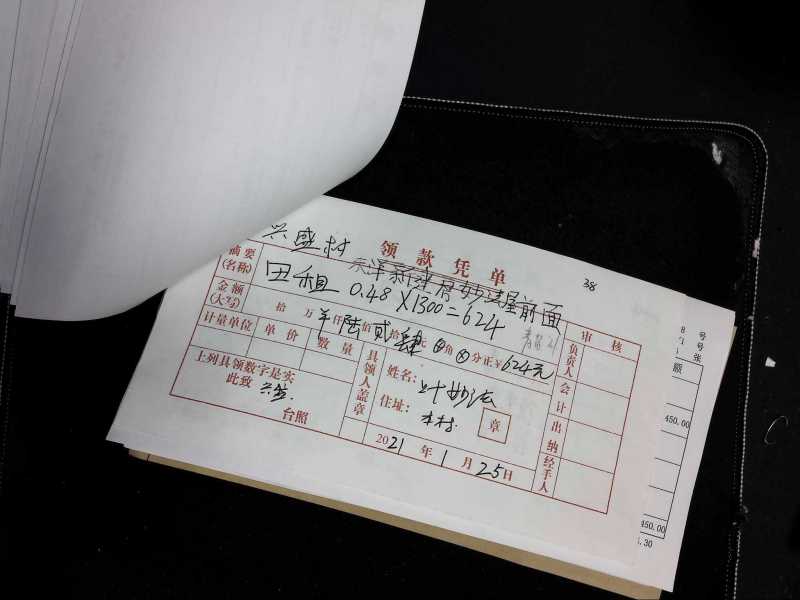 兴盛村
领款凭单
38
摘要
(名称)
田租
0.48×1300=624
屋前面
金额
(大写)
拾 万 仟 佰 拾 元 角 分正¥624元
羊陆贰肆
计量单位 单价 数量
上列具领数字是实
此致
台照
具领人盖章
姓名:
住址:
本村
章
2021年1月25日
审核
负责人
会计
出纳
经手人
号
号
张
额
450.00
450.00